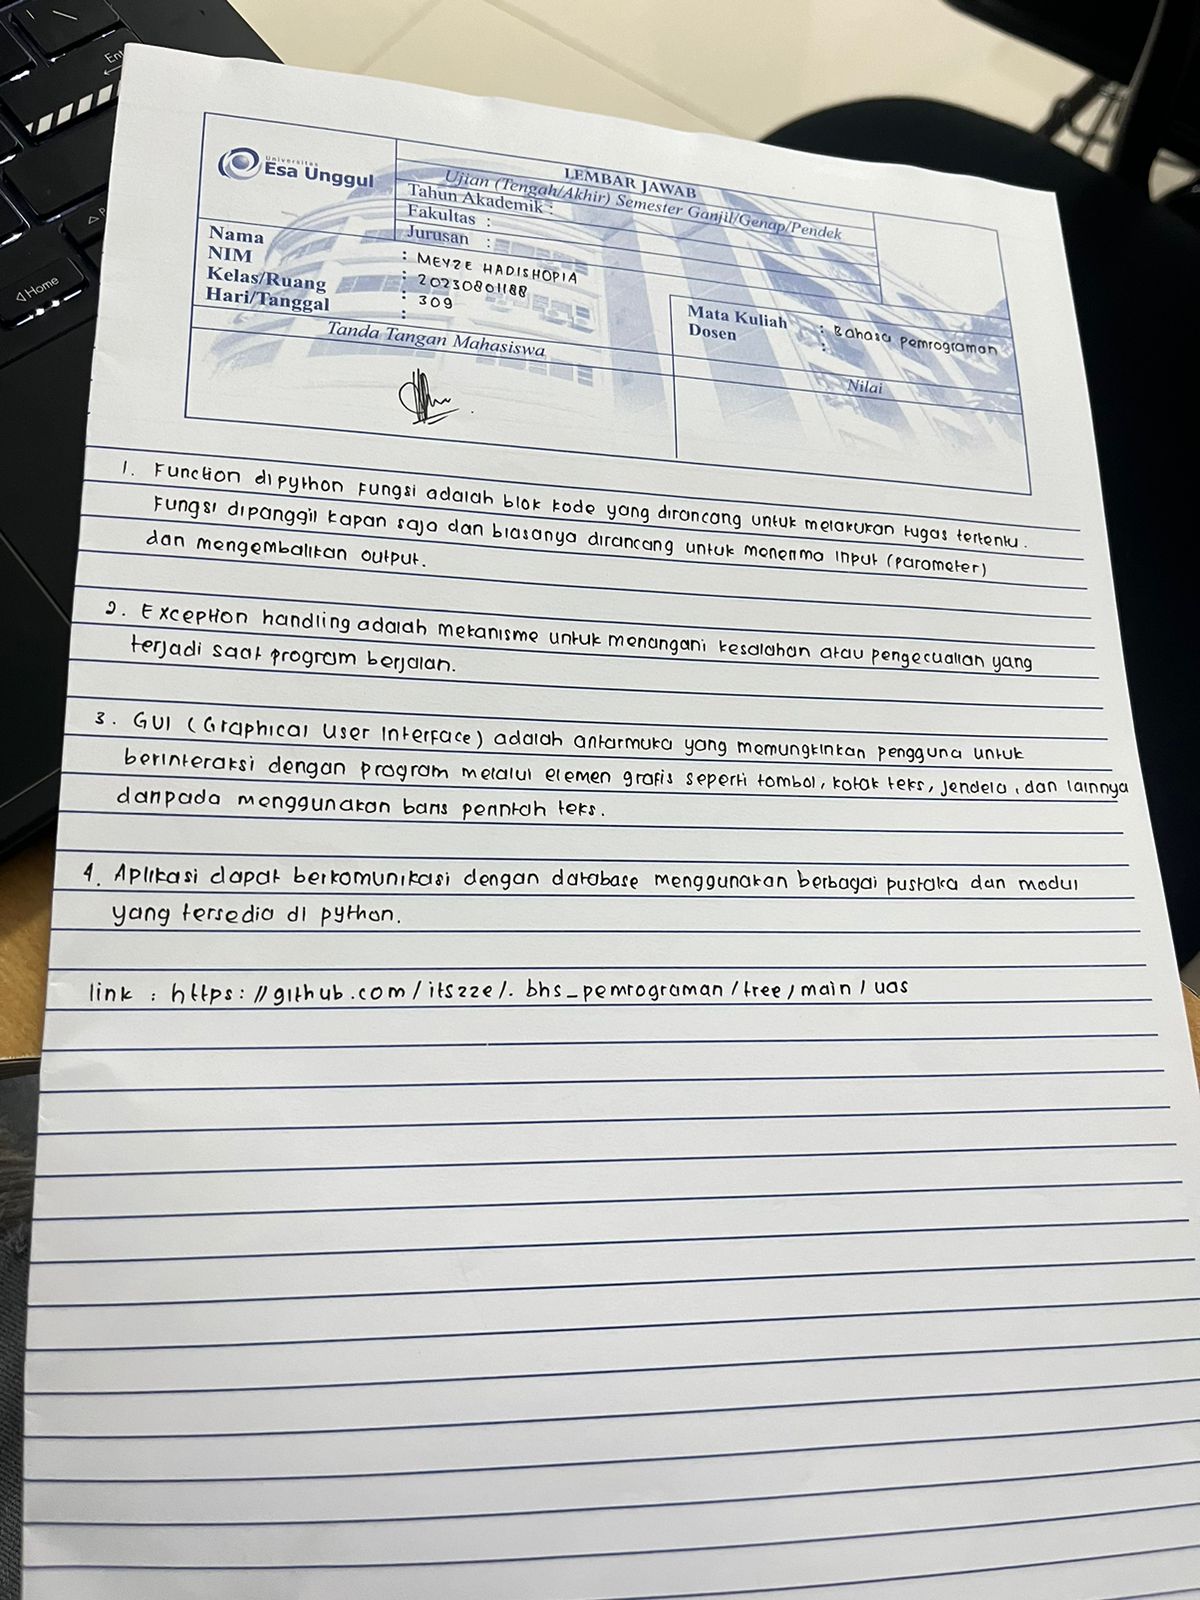 Universitas
Esa Unggul
LEMBAR JAWAB
Ujian (Tengah/Akhir) Semester Ganjil/Genap/Pendek
Tahun Akademik :
Fakultas :
Jurusan :
Nama : MEYZE HADISHOPIA
NIM : 20230801188
Kelas/Ruang : 309
Hari/Tanggal :
Mata Kuliah : Bahasa pemrograman
Dosen :
Tanda Tangan Mahasiswa
Nilai
1. Function di python Fungsi adalah blok kode yang dirancang untuk melakukan tugas tertentu.
Fungsi dipanggil kapan saja dan biasanya dirancang untuk menerima input (parameter)
dan mengembalikan output.
2. Exception handling adalah mekanisme untuk menangani kesalahan atau pengecualian yang
terjadi saat program berjalan.
3. GUI (Graphical User Interface) adalah antarmuka yang memungkinkan pengguna untuk
berinteraksi dengan program melalui elemen grafis seperti tombol, kotak teks, jendela, dan lainnya
daripada menggunakan baris perintah teks.
4. Aplikasi dapat berkomunikasi dengan database menggunakan berbagai pustaka dan modul
yang tersedia di python.
link : https://github.com/itszze/.bhs_pemrograman/tree/main/uas
Home